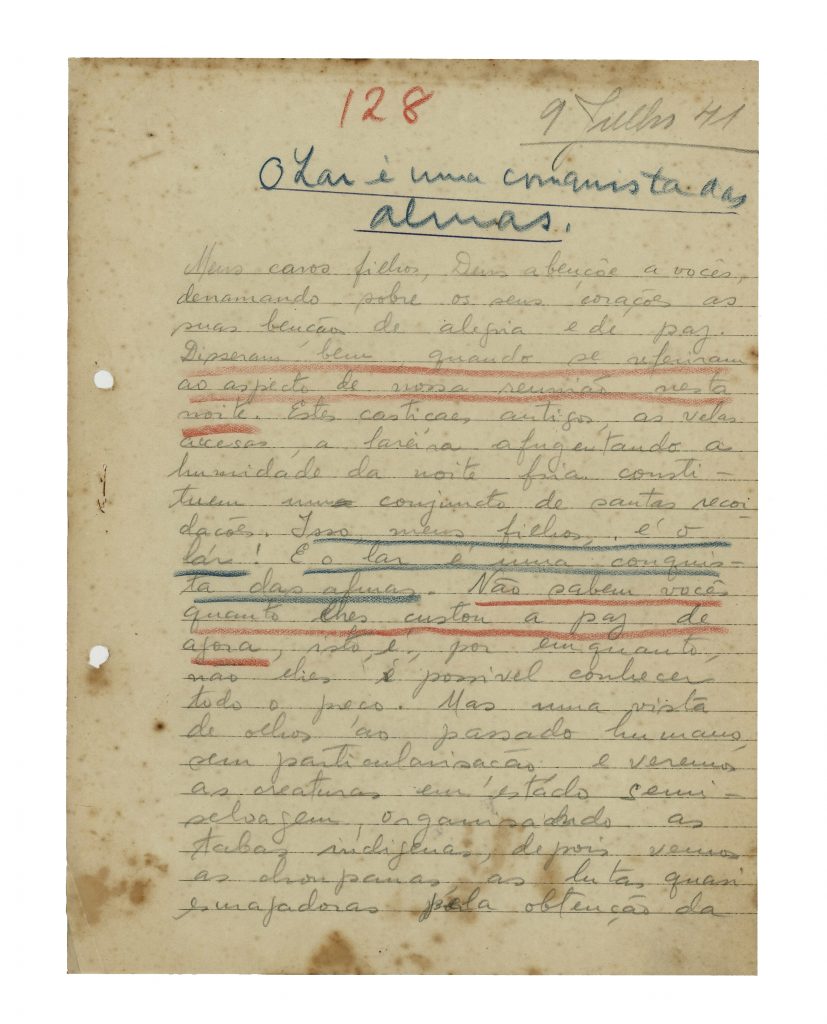 128
9 Julho 41
O Lar é uma conquista das
almas.
Meus caros filhos, Deus abençõe a vocês,
derramando sobre os seus corações as
suas bençãos de alegria e de paz.
Disseram bem, quando se referiram
ao aspecto de nossa reunião nesta
noite. Estes castiçaes antigos, as velas
accesas, a lareira afugentando a
humidade da noite fria consti-
tuem um conjuncto de santas recor
dações. Isso meus filhos, é o
lár! E o lar é uma conquis-
ta das almas. Não sabem vocês
quanto lhes custou a paz de
agora, isto é, por emquanto,
não lhes é possivel conhecer
todo o preço. Mas uma vista
de olhos ao passado humano,
sem particularisação, e veremos
as creaturas em estado semi-
selvagem, organisando as
tabas indigenas, depois vemos
as choupanas, as lutas quasi
esmagadoras pela obtenção da